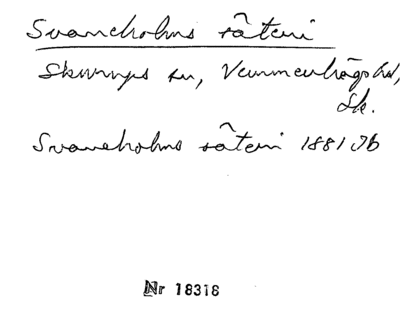 Svaneholms säteri
Skurups sn, Vemmenhögs hd,
Sk.
Svaneholms säteri 1881 Jb
Nr 18318